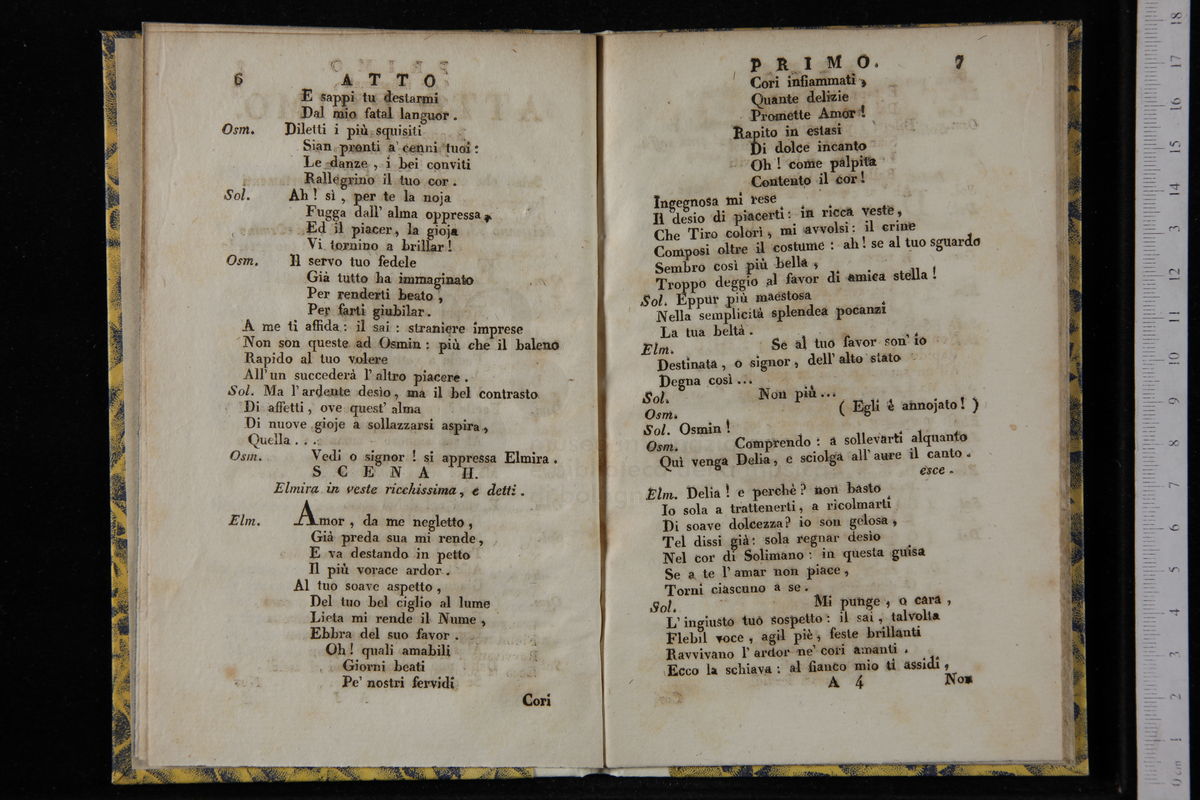 6 ATTO
E sappi tu destarmi
Dal mio fatal languor.
Osm. Diletti i più squisiti
Sian pronti a' cenni tuoi:
Le danze, i bei conviti
Rallegrino il tuo cor.
Sol. Ah! sì, per te la noja
Fugga dall' alma oppressa,
Ed il piacer, la gioja
Vi tornino a brillar!
Osm. Il servo tuo fedele
Già tutto ha immaginato
Per renderti beato,
Per farti giubilar.
A me ti affida: il sai: straniere imprese
Non son queste ad Osmin: più che il baleno
Rapido al tuo volere
All'un succederà l'altro piacere.
Sol. Ma l'ardente desìo, ma il bel contrasto
Di affetti, ove quest' alma
Di nuove gioje a sollazzarsi aspira,
Quella...
Osm. Vedi o signor! si appressa Elmira.
SCENA II.
Elmira in veste ricchissima, e detti.
Elm. Amor, da me negletto,
Già preda sua mi rende,
E va destando in petto
Il più vorace ardor.
Al tuo soave aspetto,
Del tuo bel ciglio al lume
Lieta mi rende il Nume,
Ebbra del suo favor.
Oh! quali amabili
Giorni beati
Pe' nostri fervidi
Cori
PRIMO. 7
Cori infiammati,
Quante delizie
Promette Amor!
Rapito in estasi
Di dolce incanto
Oh! come palpita
Contento il cor!
Ingegnosa mi rese
Il desio di piacerti: in ricca veste,
Che Tiro colorì, mi avvolsi: il crine
Composi oltre il costume: ah! se al tuo sguardo
Sembro così più bella,
Troppo deggio al favor di amica stella!
Sol. Eppur più maestosa
Nella semplicità splendea pocanzi
La tua beltà.
Elm. Se al tuo favor son' io
Destinata, o signor, dell' alto stato
Degna così...
Sol. Non più...
Osm. ( Egli è annojato! )
Sol. Osmin!
Osm. Comprendo: a sollevarti alquanto
Quì venga Delia, e sciolga all' aure il canto.
esce.
Elm. Delia! e perchè? non basto
Io sola a trattenerti, a ricolmarti
Di soave dolcezza? io son gelosa,
Tel dissi già: sola regnar desìo
Nel cor di Solimano: in questa guisa
Se a te l'amar non piace,
Torni ciascuno a se.
Sol. Mi punge, o cara,
L'ingiusto tuo sospetto: il sai, talvolta
Flebil voce, agil piè, feste brillanti
Ravvivano l'ardor ne' cori amanti.
Ecco la schiava: al fianco mio ti assidi,
A 4 Non